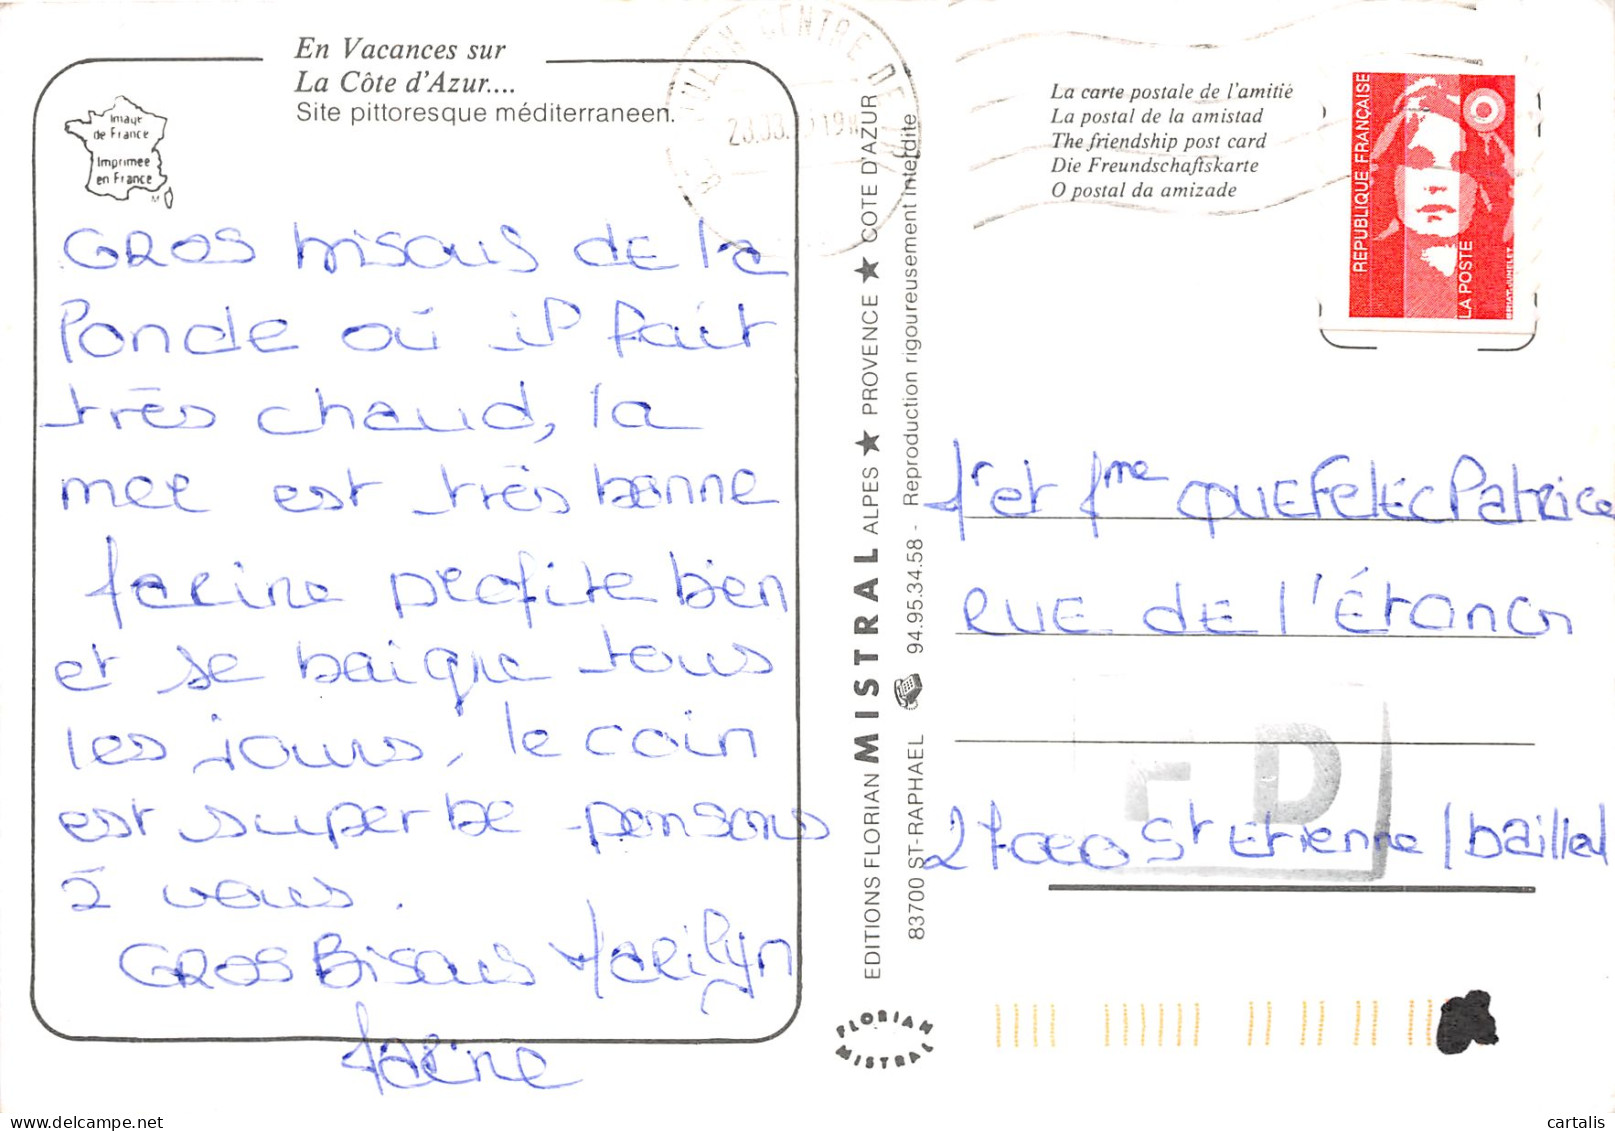 En Vacances sur
La Côte d'Azur....
Site pittoresque méditerraneen.
Image
de France
Imprimee
en France
GROS bisous de la
londe où il fait
très chaud, la
mer est très bonne
Marine profite bien
et se baigne tous
les jours, le coin
est superbe pensons
à vous.
GROS Bisous Marilyn
Marine
EDITIONS FLORIAN MISTRAL ALPES ★ PROVENCE ★ COTE D'AZUR
83700 ST-RAPHAEL 94.95.34.58 - Reproduction rigoureusement interdite
FLORIAN
MISTRAL
TOULON CENTRE
La carte postale de l'amitié
La postal de la amistad
The friendship post card
Die Freundschaftskarte
O postal da amizade
REPUBLIQUE FRANÇAISE
LA POSTE
BRIAT-JUMELET
Mr et Mme QUEFELEC Patrice
RUE DE l'Étang
27000 St Etienne / bailleul
D
cartalis